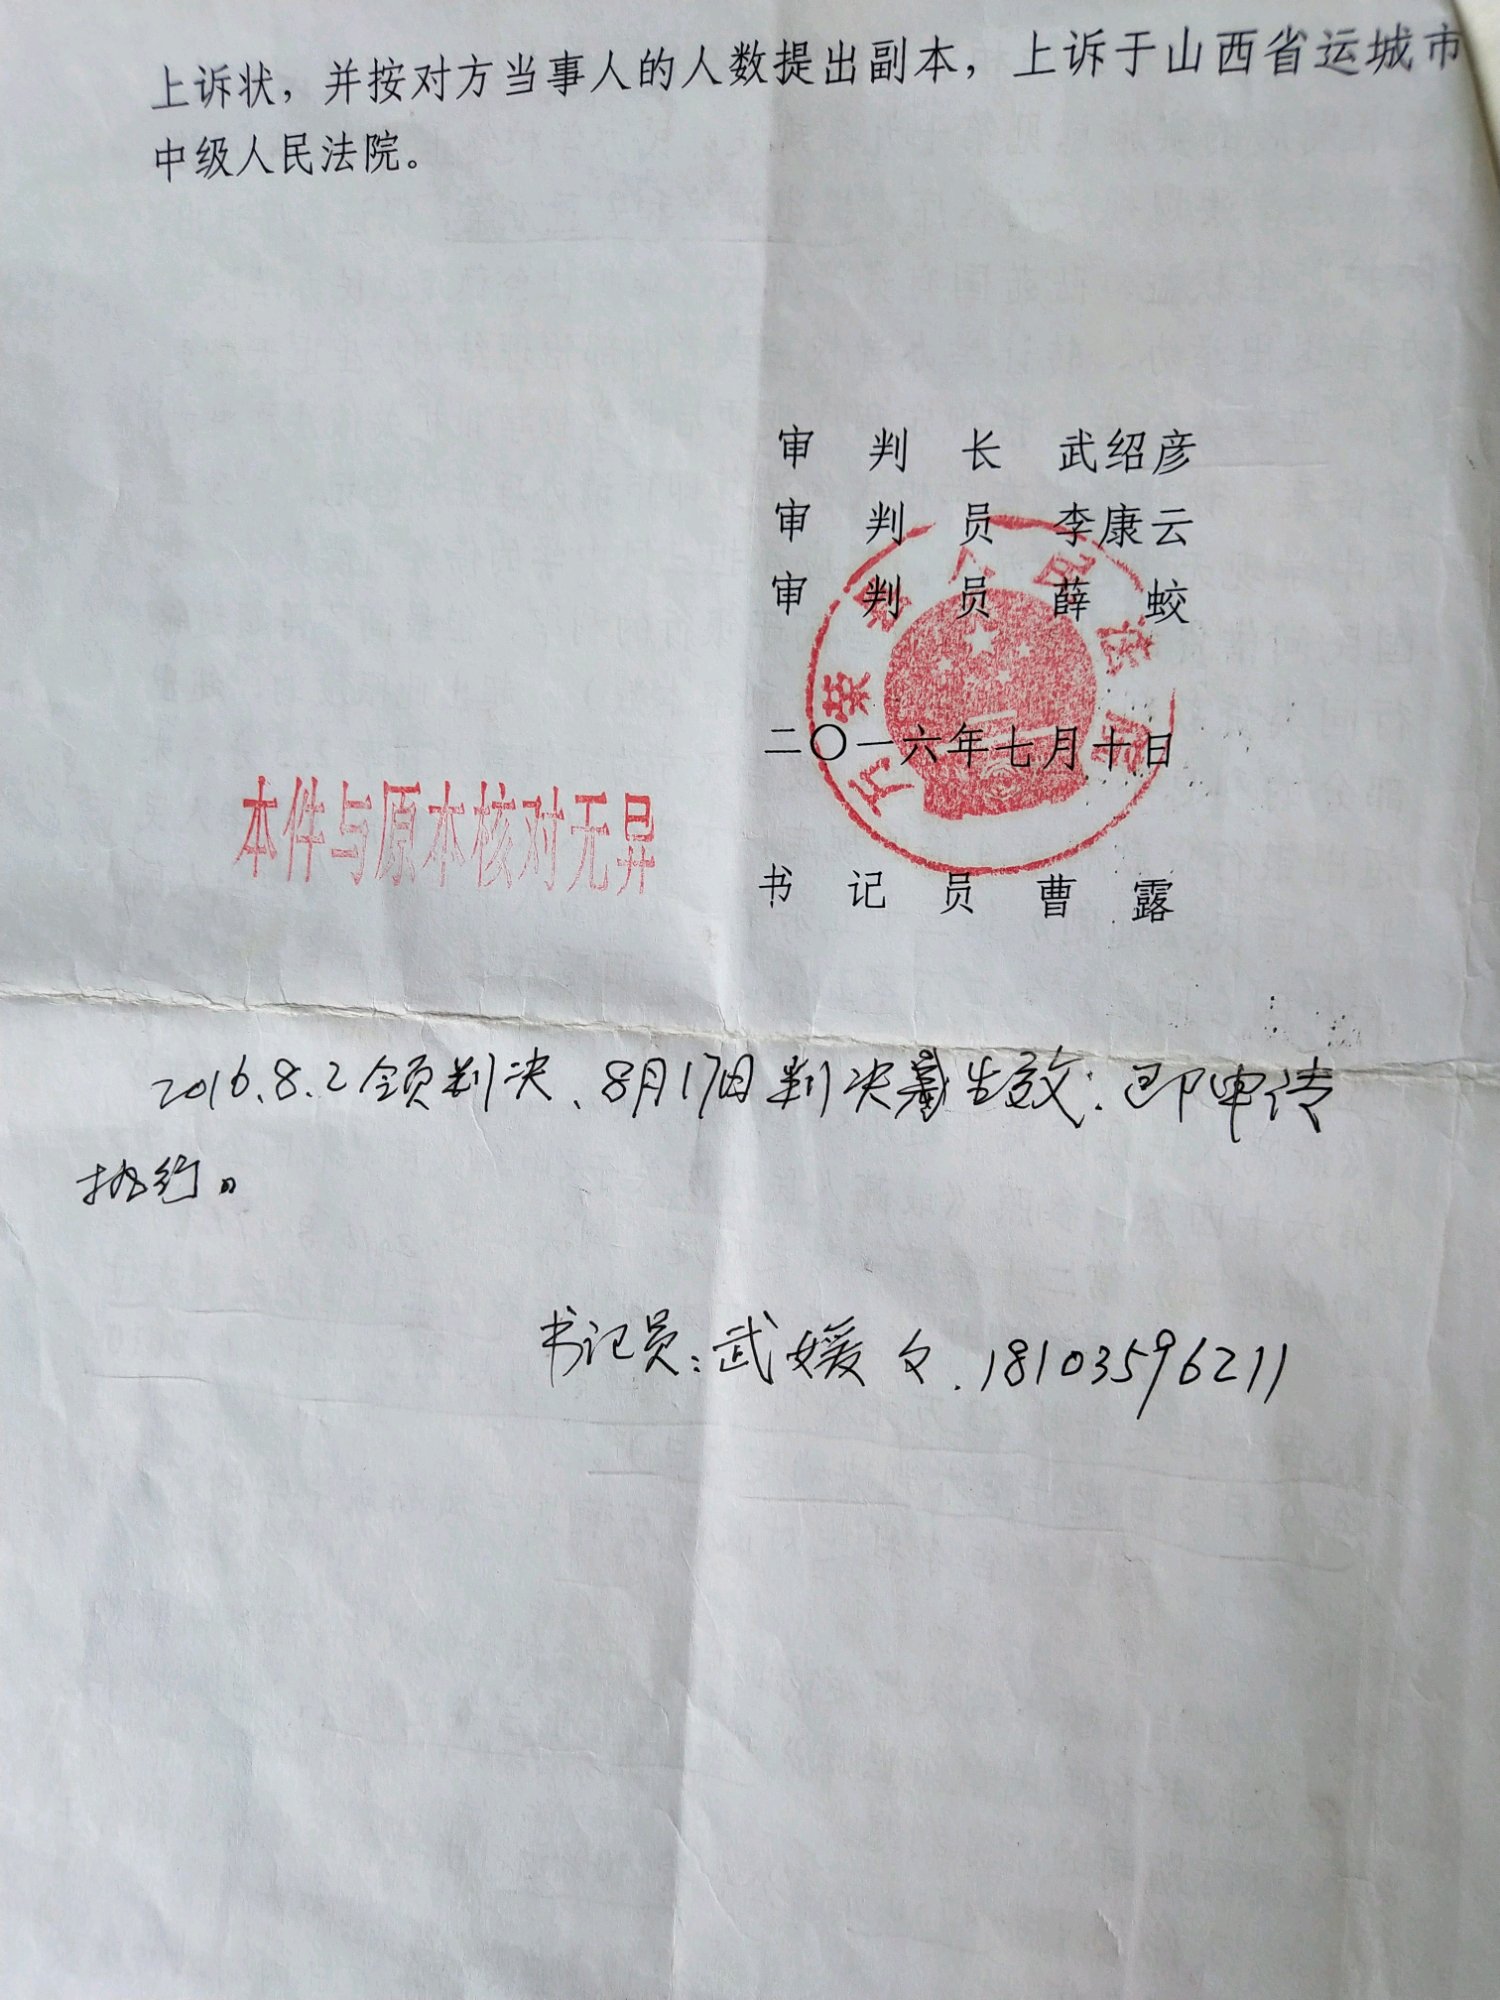 上诉状，并按对方当事人的人数提出副本，上诉于山西省运城市
中级人民法院。
审 判 长 武绍彦
审 判 员 李康云
审 判 员 薛 蛟
万荣县人民法院
二〇一六年七月十日
本件与原本核对无异
书 记 员 曹 露
2016.8.2领判决、8月17日判决书生效；即申请
执行。
书记员：武媛文.18103596211